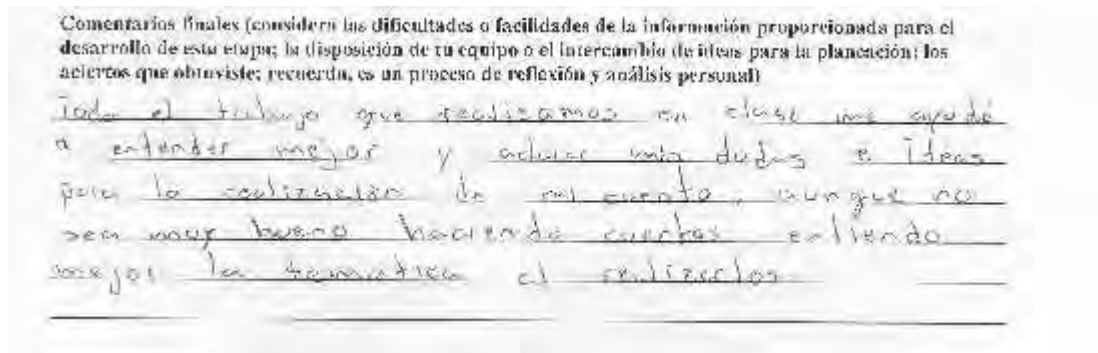 Comentarios finales (considera las dificultades o facilidades de la información proporcionada para el
desarrollo de esta etapa; la disposición de tu equipo o el intercambio de ideas para la planeación; los
aciertos que obtuviste; recuerda, es un proceso de reflexión y análisis personal)
Todo el trabajo que realizamos en clase me ayudó
a entender mejor y aclarar mis dudas e ideas
para la realización de mi cuento, aunque no
sea muy bueno haciendo cuentos entiendo
mejor la temática al realizarlos